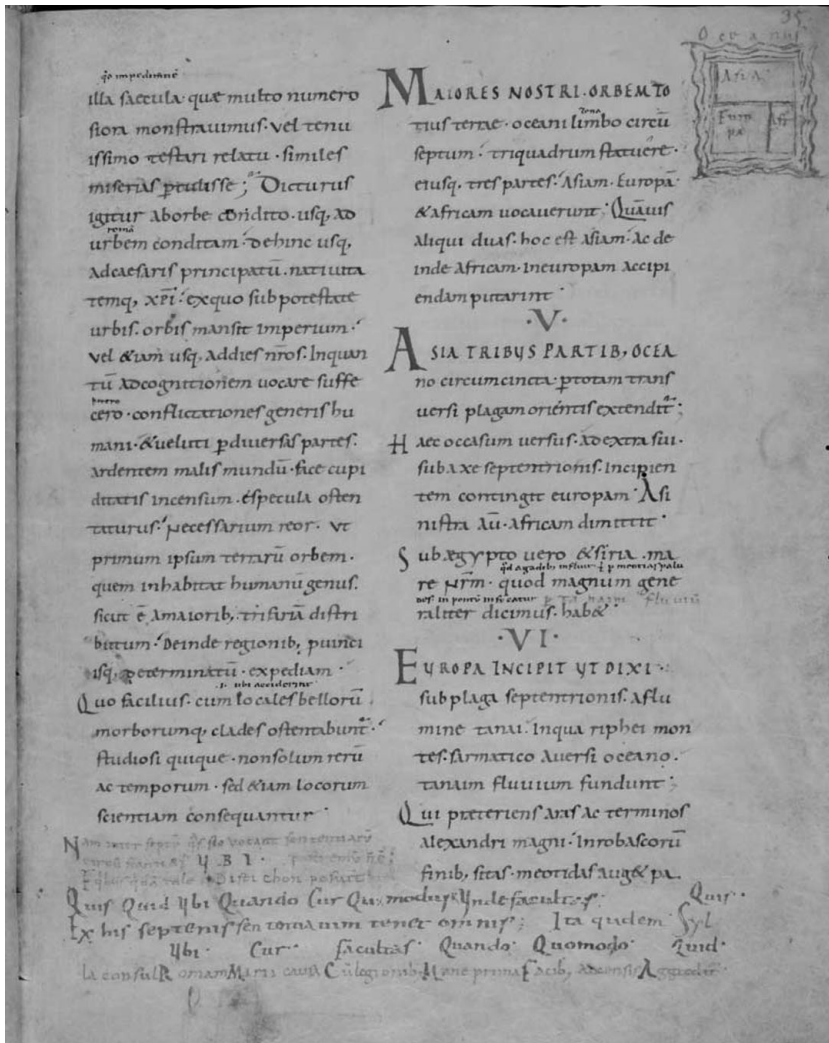 35
illa saecula quae multo numero
siora monstravimus vel tenu
issimo testari relatu similes
miserias ptulisse; Dicturus
igitur ab orbe condito usq, ad
roma
urbem conditam dehinc usq,
ad caesaris principatū nativita
temq, xpi ex quo sub potestate
urbis orbis mansit imperium
vel &iam usq, ad dies nros. Inquan
tū ad cognitionem vocare suffe
cero conflictationes generis hu
mani & veluti p diversas partes
ardentem malis mundū face cupi
ditatis incensum e specula osten
taturus necessarium reor ut
primum ipsum terrarū orbem
quem inhabitat humanū genus
sicut ē a maiorib, trifariā distri
butum Deinde regionib, puinci
isq, determinatū expediam
Quo facilius cum locales bellorū
morborumq, clades ostentabunt
studiosi quique non solum rerū
ac temporum sed &iam locorum
scientiam consequantur
Oceanus
Asia
Europa
Afr
MAIORES NOSTRI ORBEM TO
zona
tius terrae oceani limbo circū
septum triquadrum statuere
eiusq, tres partes Asiam Europā
& africam vocaverunt; Quāvis
aliqui duas hoc est asiam ac de
inde africam in europam accipi
endam putarint
V
ASIA TRIBUS PARTIB, OCEA
no circumcincta p totam trans
versi plagam orientis extendit;
Haec occasum versus ad extra sui
sub axe septentrionis Incipien
tem contingit europam A si
nistra aū africam dimittit
Sub aegypto vero & siria ma
re nrm quod magnum gene
raliter dicimus hab&
VI
EUROPA INCIPIT UT DIXI
sub plaga septentrionis a flu
mine tanai In qua riphei mon
tes sarmatico aversi oceano
tanaim fluvium fundunt;
Qui praeteriens aras ac terminos
alexandri magni In robascorū
finib, sitas meotidas aug& pa
UBI
Quis Quid Ubi Quando Cur Quomodus Unde facultas Quis
Ex his septenis tenet omnis; Ita quidem Syl
Ubi Cur facultas Quando Quomodo Quid
la consul Romam Marii causa Cū legionib, Mane prima Facib, Aggredit